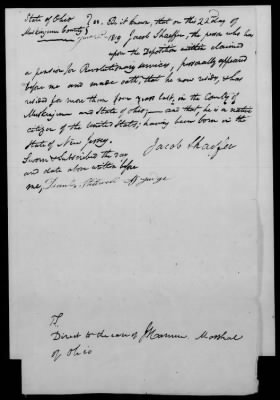 State of Ohio } ss. Be it known, that on this 22d day of
Muskingum County 1819 Jacob Shaeffer, the person who has
upon the Deposition within claimed
a pension for Revolutionary services, personally appeared
before me and made oath, that he now resides, & has
resided for more than four years last, in the County of
Muskingum and State of Ohio, and that he is a native
citizen of the United States, having been born in the
State of New Jersey.
Sworn & Subscribed the day
and date above written before
me,
Jacob Shaffer
To
Direct to the care of Marshal
of Ohio